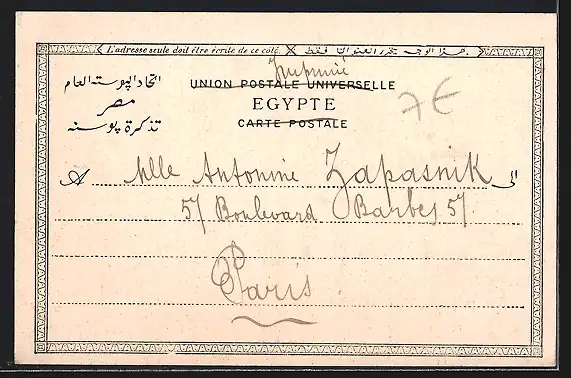 L'adresse seule doit être écrite de ce côté. هذا الوجه يحرر العنوان فقط
Imprimé
اتحاد البوسته العام UNION POSTALE UNIVERSELLE
مصر EGYPTE 7€
تذكرة بوسته CARTE POSTALE
A Mlle Antonine Zapasnik الى
57 Boulevard Barbès 57
Paris